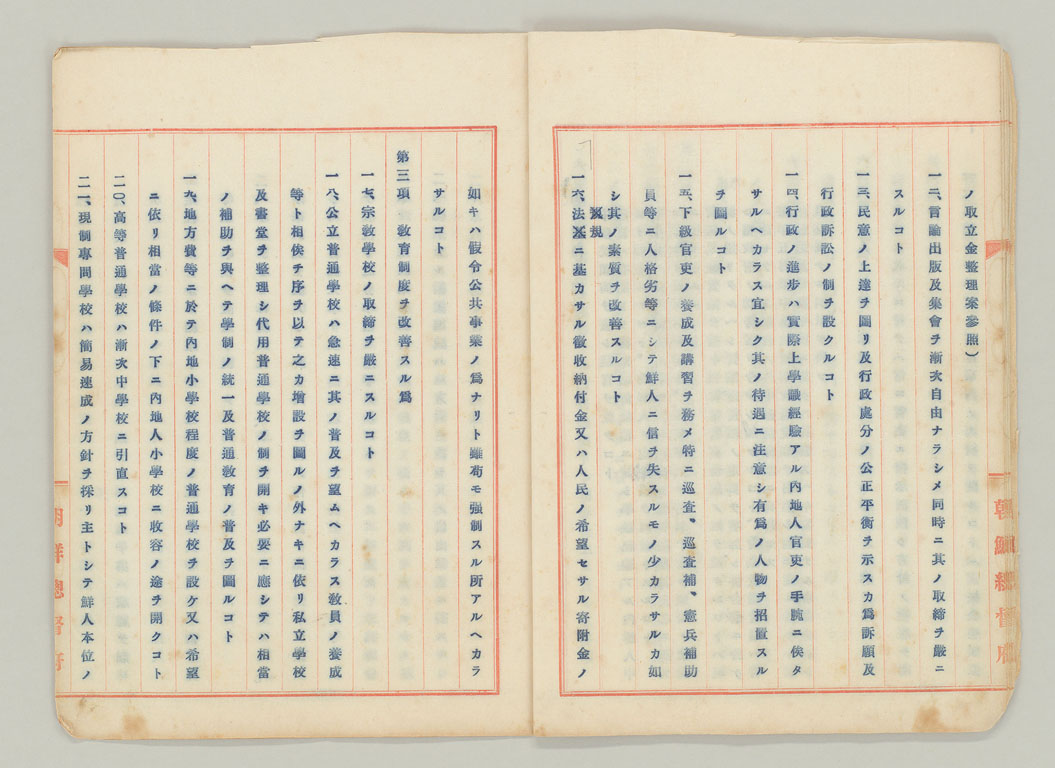 ノ取立金整理案參照）
一二、言論出版及集會ヲ漸次自由ナラシメ同時ニ其ノ取締ヲ嚴ニ
スルコト
一三、民意ノ上達ヲ圖リ及行政處分ノ公正平衡ヲ示スカ爲訴願及
行政訴訟ノ制ヲ設クルコト
一四、行政ノ進步ハ實際上學識經驗アル內地人官吏ノ手腕ニ俟タ
サルヘカラス宜シク其ノ待遇ニ注意シ有爲ノ人物ヲ招置スル
ヲ圖ルコト
一五、下級官吏ノ養成及講習ヲ務メ特ニ巡査、巡査補、憲兵補助
員等ニ人格劣等ニシテ鮮人ニ信ヲ失スルモノ少カラサルカ如
シ其ノ素質ヲ改善スルコト
一六、法規ニ基カサル徵收納付金又ハ人民ノ希望セサル寄附金ノ
如キハ假令公共事業ノ爲ナリト雖苟モ强制スル所アルヘカラ
サルコト
第三項 敎育制度ヲ改善スル爲
一七、宗敎學校ノ取締ヲ嚴ニスルコト
一八、公立普通學校ハ急速ニ其ノ普及ヲ望ムヘカラス敎員ノ養成
等ト相俟チ序ヲ以テ之カ增設ヲ圖ルノ外ナキニ依リ私立學校
及書堂ヲ整理シ代用普通學校ノ制ヲ開キ必要ニ應シテハ相當
ノ補助ヲ與ヘテ學制ノ統一及普通敎育ノ普及ヲ圖ルコト
一九、地方費等ニ於テ內地小學校程度ノ普通學校ヲ設ケ又ハ希望
ニ依リ相當ノ條件ノ下ニ內地人小學校ニ收容ノ途ヲ開クコト
二〇、高等普通學校ハ漸次中學校ニ引直スコト
二一、現制專門學校ハ簡易速成ノ方針ヲ採リ主トシテ鮮人本位ノ
朝鮮總督府